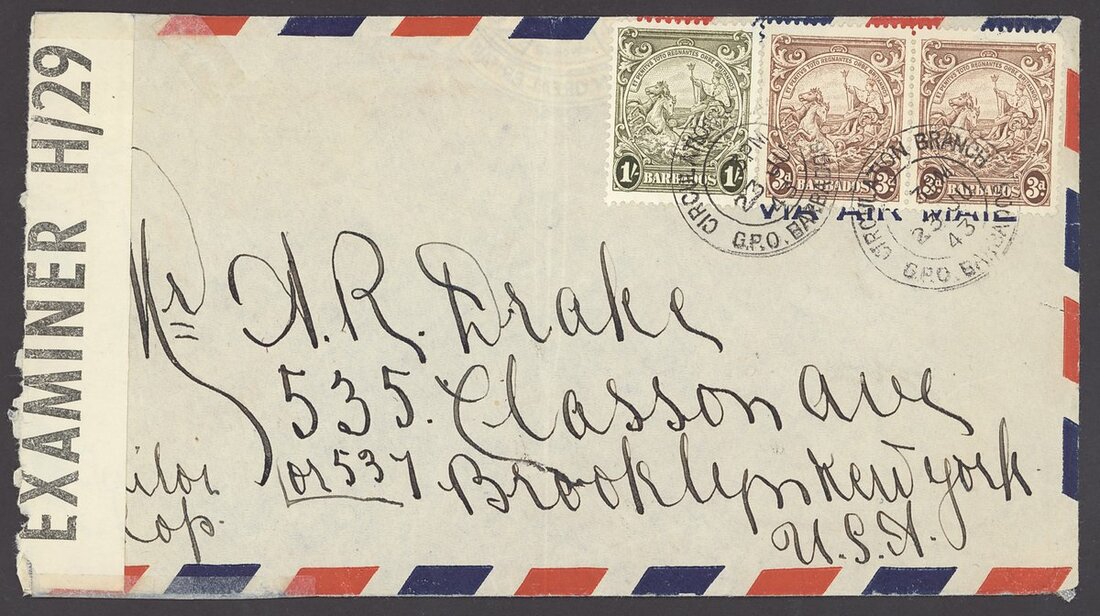 EXAMINER H/29
ET PENITUS TOTO REGNANTES ORBE BRITANNOS
1/- BARBADOS 1/-
3d BARBADOS 3d
3d BARBADOS 3d
VIA AIR MAIL
CIRCULATION BRANCH
PM
23 JU
43
G.P.O. BARBADOS
CIRCULATION BRANCH
PM
23 JU
43
G.P.O. BARBADOS
Mr A. R. Drake
535. Classon Ave
or 537 Brooklyn New York
U.S.A.
ilor
op.